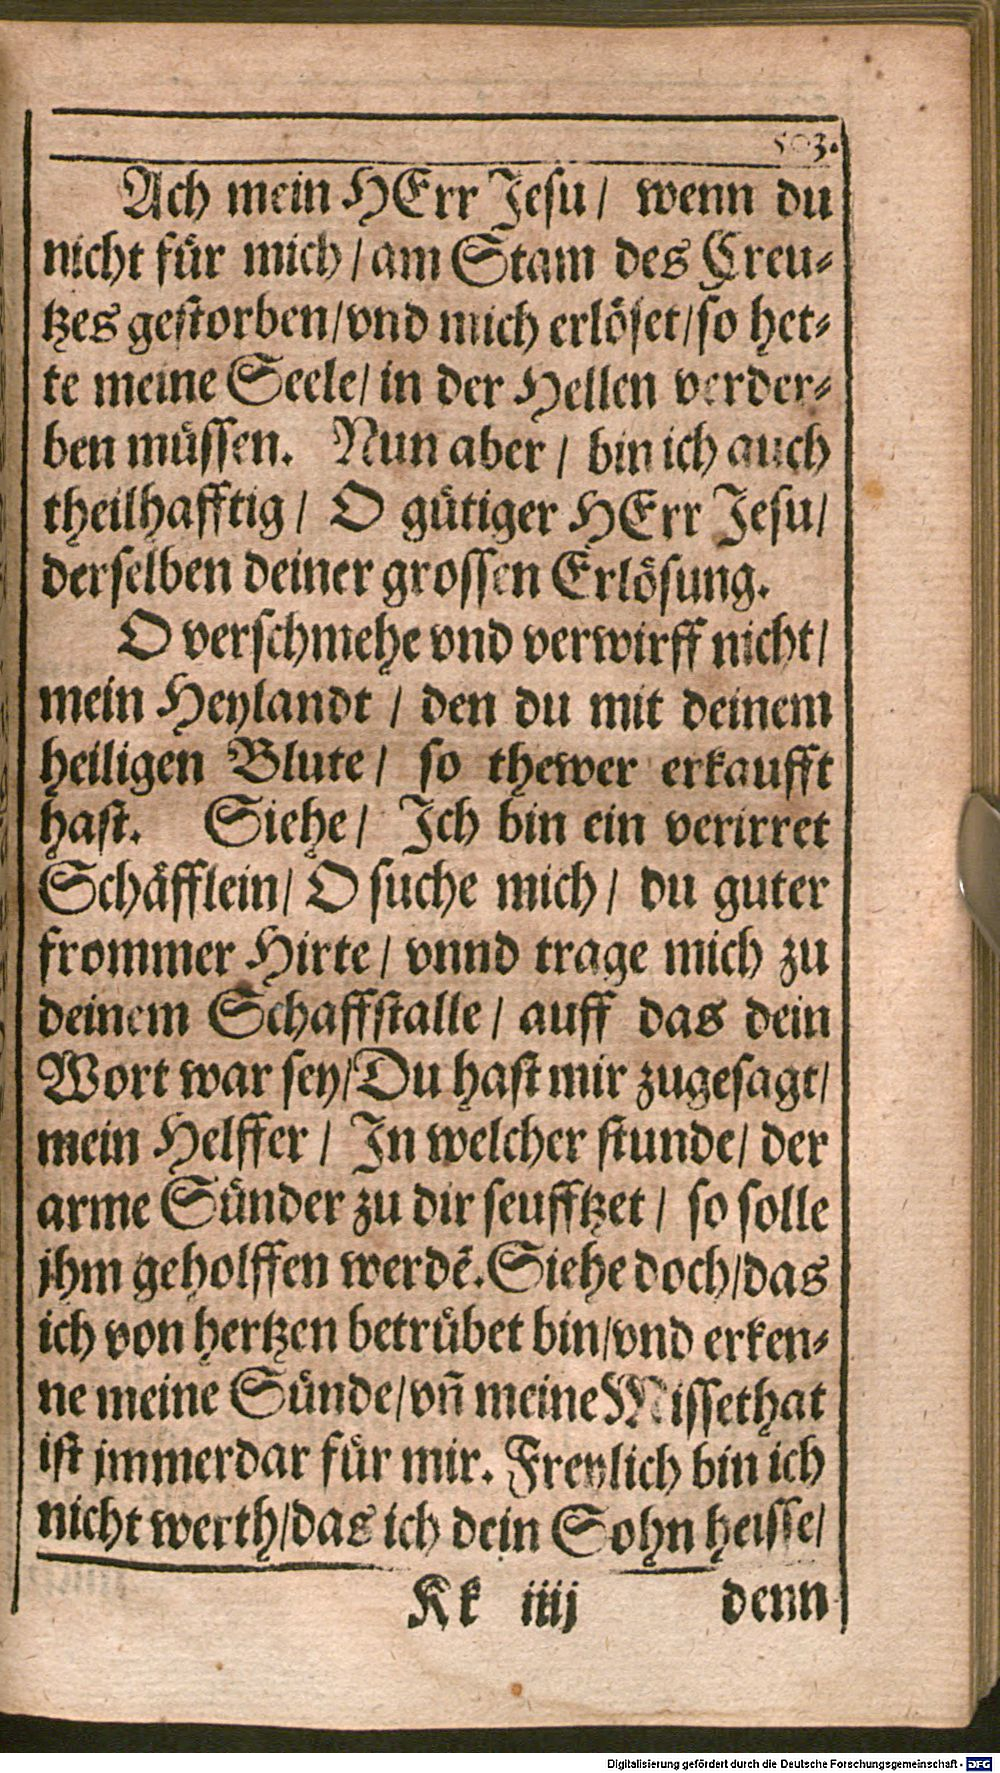 503.
Ach mein HErr Jesu/ wenn du
nicht für mich/ am Stam des Creu-
tzes gestorben/ vnd mich erlöset/ so het-
te meine Seele/ in der Hellen verder-
ben müssen. Nun aber/ bin ich auch
theilhafftig/ O gütiger HErr Jesu/
derselben deiner grossen Erlösung.
O verschmehe vnd verwirff nicht/
mein Heylandt/ den du mit deinem
heiligen Blute/ so thewer erkaufft
hast. Siehe/ Ich bin ein verirret
Schäfflein/ O suche mich/ du guter
frommer Hirte/ vnnd trage mich zu
deinem Schaffstalle/ auff das dein
Wort war sey/ Du hast mir zugesagt/
mein Helffer/ In welcher stunde/ der
arme Sünder zu dir seufftzet/ so solle
jhm geholffen werdē. Siehe doch/ das
ich von hertzen betrübet bin/ vnd erken-
ne meine Sünde/ vn̄ meine Missethat
ist jmmerdar für mir. Freylich bin ich
nicht werth/ das ich dein Sohn heisse/
Kk iiij denn
Digitalisierung gefördert durch die Deutsche Forschungsgemeinschaft - DFG